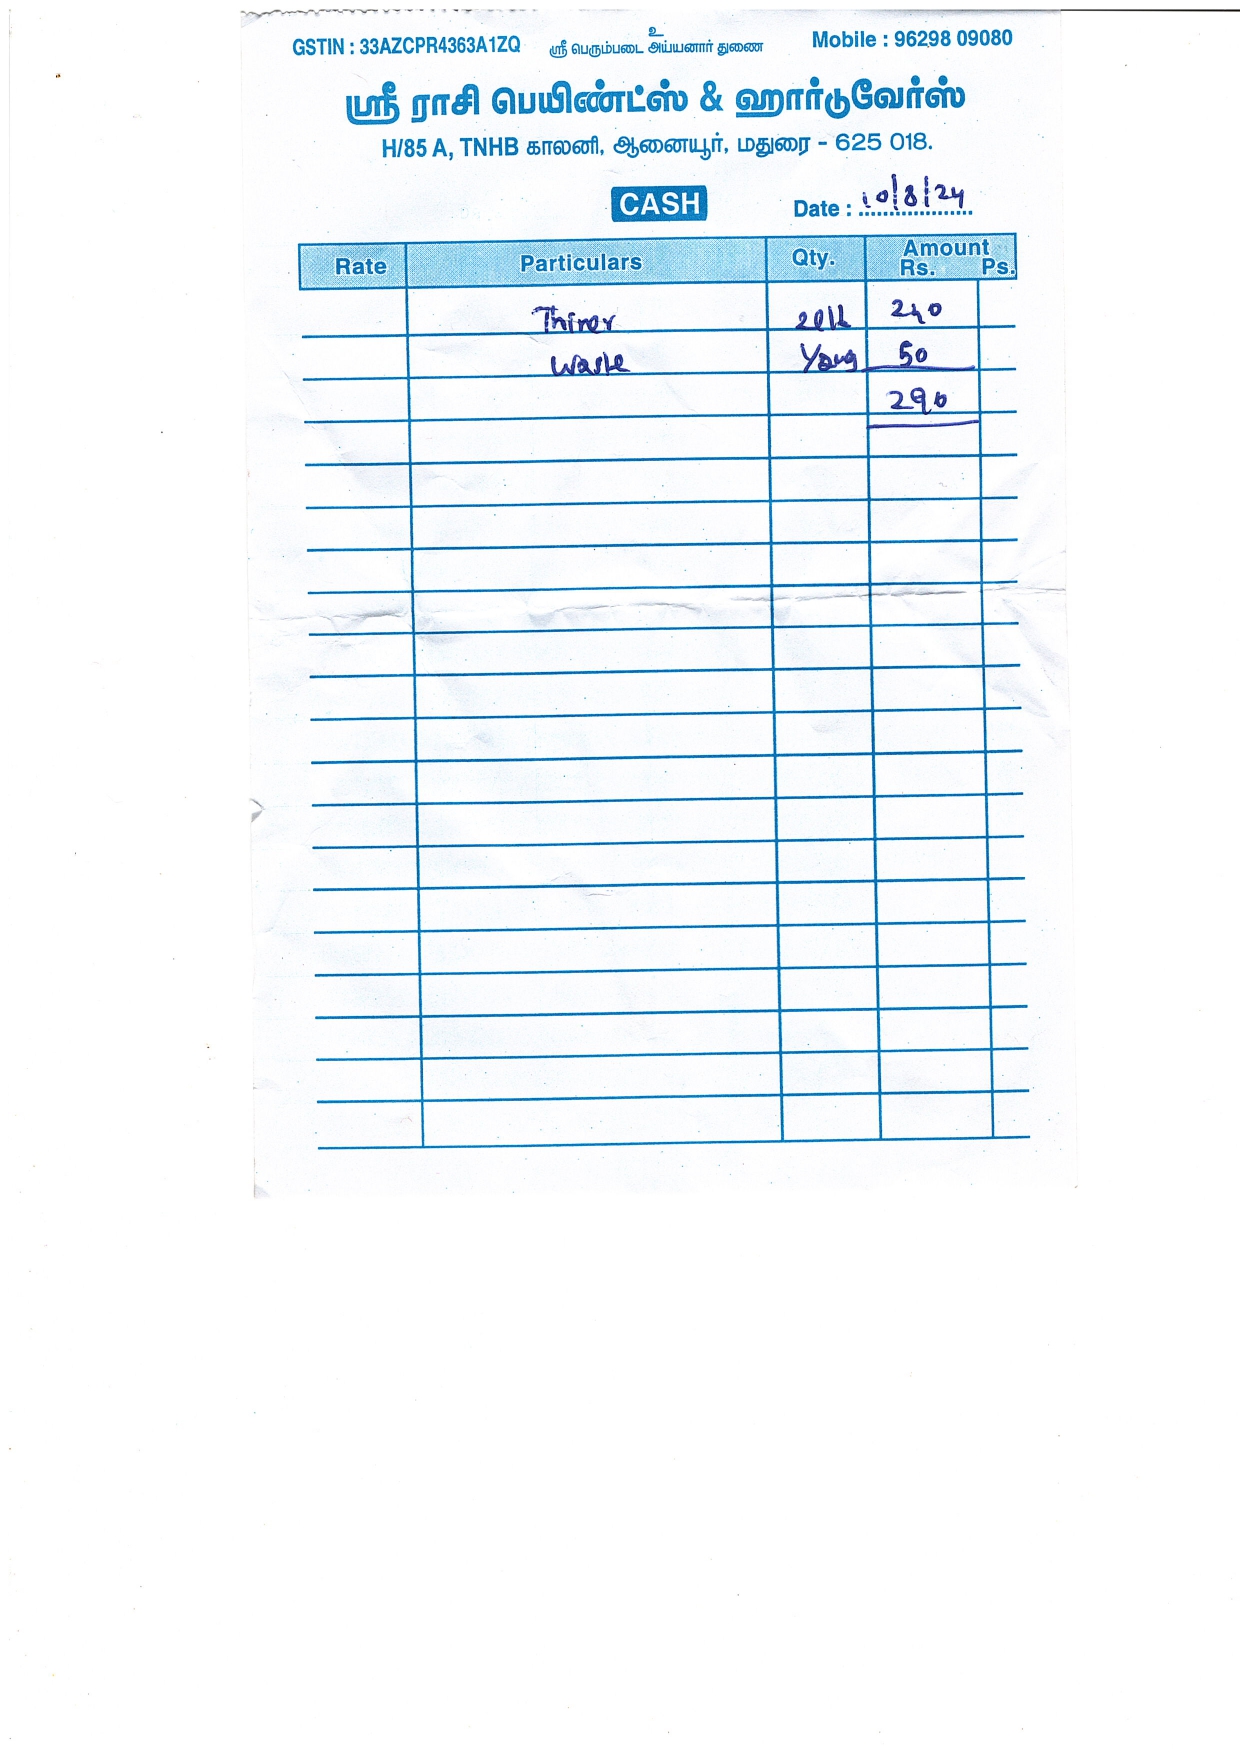 உ
GSTIN : 33AZCPR4363A1ZQ ஸ்ரீ பெரும்படை அய்யனார் துணை Mobile : 96298 09080
ஸ்ரீ ராசி பெயிண்ட்ஸ் & ஹார்டுவேர்ஸ்
H/85 A, TNHB காலனி, ஆனையூர், மதுரை - 625 018.
CASH Date : 10/8/24
Rate Particulars Qty. Amount Rs. Ps.
Thiner 240
Waste 50
290